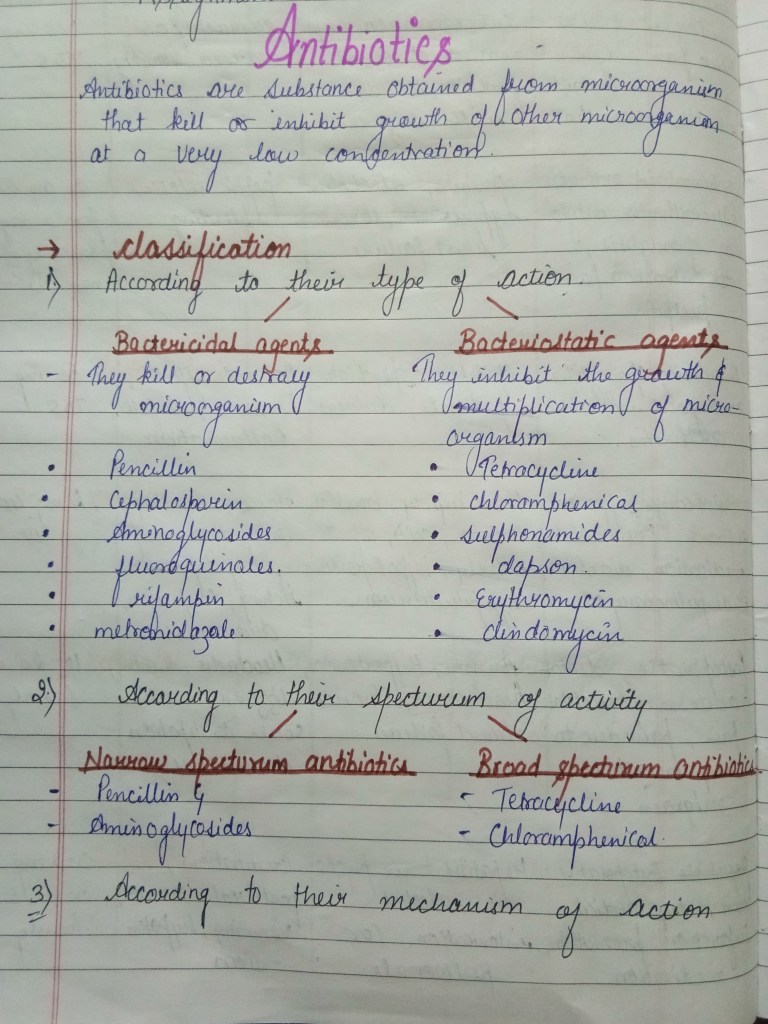 Antibiotics
Antibiotics are substance obtained from microorganism
that kill or inhibit growth of other microorganism
at a very low concentration.
→ classification
1) According to their type of action.
Bactericidal agents
Bacteriostatic agents
- They kill or destraly
microorganism
They inhibit the growth &
multiplication of micro-
organism
• Pencillin
• Cephalosparin
• Aminoglycosides
• fluoroquinales.
• rifampin
• metronidazale.
• Tetracycline
• chloramphenical
• sulphonamides
• dapson.
• Erythromycin
• clindomycin
2.) According to their specturum of activity
Narrow specturum antibiotics
Broad specturum antibiotics
- Pencillin &
- Aminoglycosides
- Tetracycline
- Chloramphenical.
3) According to their mechanism of action